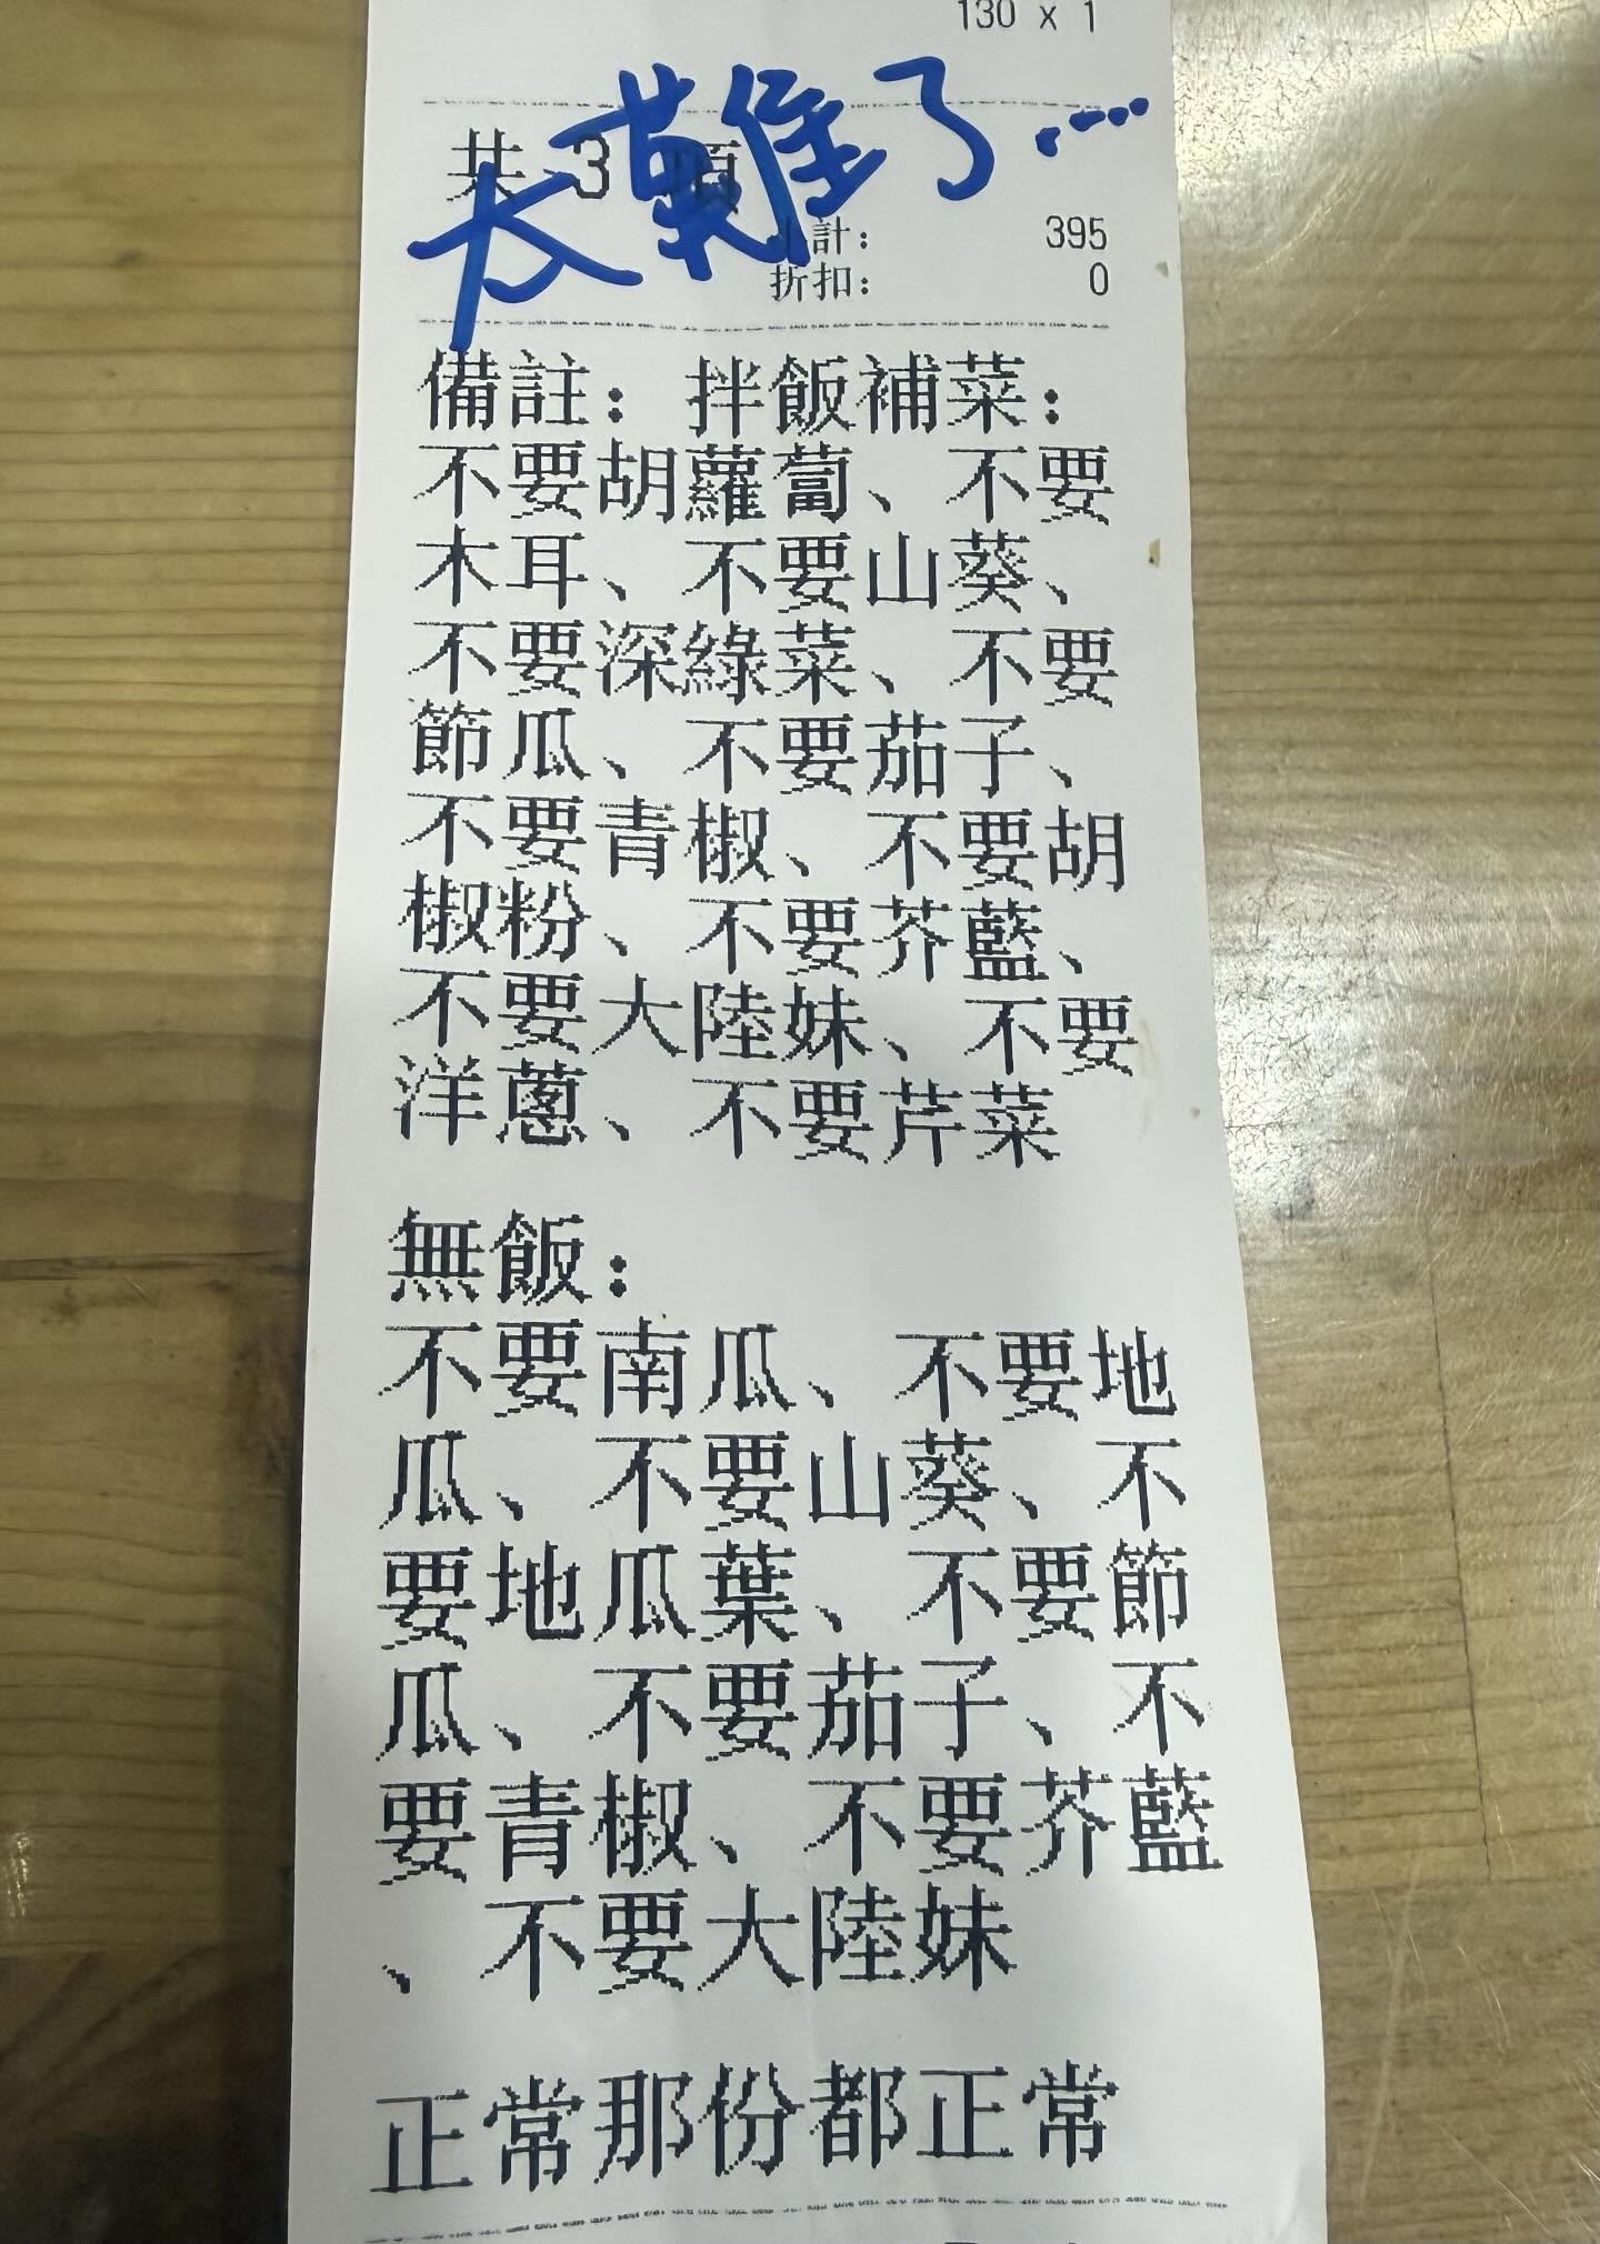 130 x 1
太難了...
共 3 項
小計: 395
折扣: 0
備註：拌飯補菜：
不要胡蘿蔔、不要
木耳、不要山葵、
不要深綠菜、不要
節瓜、不要茄子、
不要青椒、不要胡
椒粉、不要芥藍、
不要大陸妹、不要
洋蔥、不要芹菜
無飯：
不要南瓜、不要地
瓜、不要山葵、不
要地瓜葉、不要節
瓜、不要茄子、不
要青椒、不要芥藍
、不要大陸妹
正常那份都正常